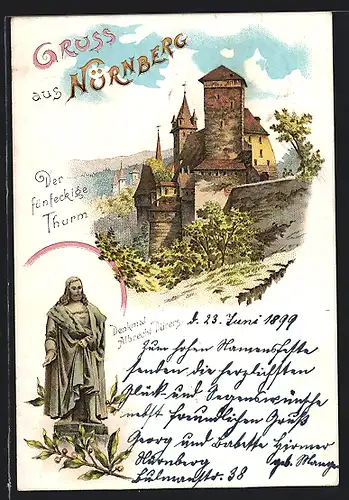 Gruss
aus Nürnberg
Der
fünfeckige
Thurm
Denkmal
Albrecht Dürers
d. 23. Juni 1899
Zum hohen Namensfeste
senden die herzlichsten
Glük- und Segenswünsche
nebst freundlichen Gruß
Georg und Babette Hirmer
Nürnberg geb. Mang
Bulmanstr. 38